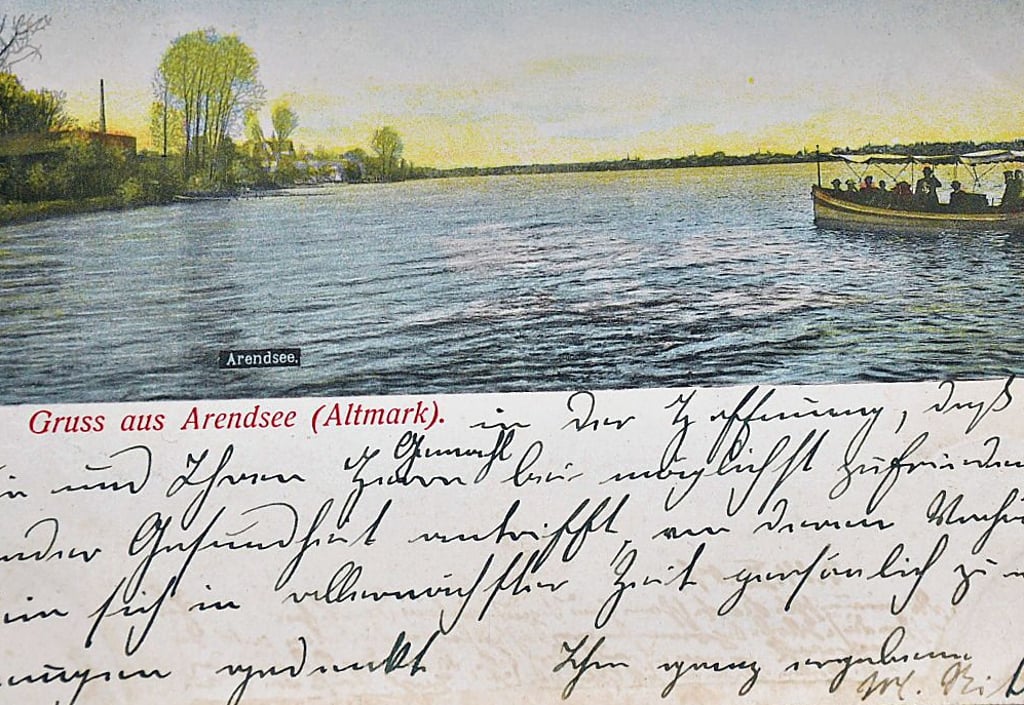 Arendsee.
Gruss aus Arendsee (Altmark).
in der Hoffnung, daß
und Ihren Herrn Gemahl bei möglichst zufrieden
Gesundheit antrifft, von deren
sich in allernächster Zeit persönlich zu
gedenkt Ihre ganz ergebene